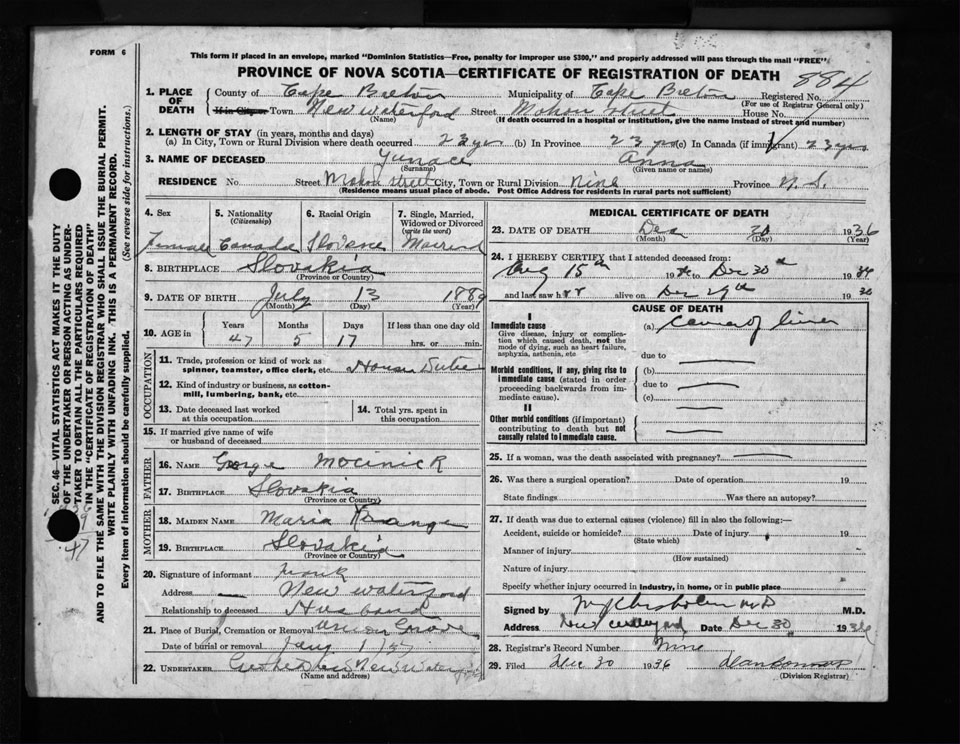 FORM 6
This form if placed in an envelope, marked "Dominion Statistics—Free, penalty for improper use $300," and properly addressed will pass through the mail "FREE"
PROVINCE OF NOVA SCOTIA—CERTIFICATE OF REGISTRATION OF DEATH
884
1. PLACE OF DEATH
County of Cape Breton Municipality of Cape Breton Registered No.
(For use of Registrar General only)
If in City or Town New Waterford Street Mahon Street House No.
(Name) (If death occurred in a hospital or institution, give the name instead of street and number)
2. LENGTH OF STAY (in years, months and days)
(a) In City, Town or Rural Division where death occurred 23 yrs (b) In Province 23 yrs (c) In Canada (if immigrant) 23 yrs
3. NAME OF DECEASED Yunace Anna
(Surname) (Given name or names)
RESIDENCE No. Street Mahon Street City, Town or Rural Division Nine Province N.S.
(Residence means usual place of abode. Post Office Address for residents in rural parts not sufficient)
4. Sex Female
5. Nationality (Citizenship) Canada
6. Racial Origin Slovene
7. Single, Married, Widowed or Divorced (write the word) Married
8. BIRTHPLACE Slovakia
(Province or Country)
9. DATE OF BIRTH July 13 1889
(Month) (Day) (Year)
10. AGE in Years Months Days If less than one day old
47 5 17 hrs. or min.
OCCUPATION
11. Trade, profession or kind of work as spinner, teamster, office clerk, etc. House Duties
12. Kind of industry or business, as cotton-mill, lumbering, bank, etc.
13. Date deceased last worked at this occupation
14. Total yrs. spent in this occupation
15. If married give name of wife or husband of deceased
FATHER
16. NAME George Mocinick
17. BIRTHPLACE Slovakia
(Province or Country)
MOTHER
18. MAIDEN NAME Maria
19. BIRTHPLACE Slovakia
(Province or Country)
20. Signature of informant Frank
Address New Waterford
Relationship to deceased Husband
21. Place of Burial, Cremation or Removal Union Grove
Date of burial or removal Jany 1/37
22. UNDERTAKER New Waterford
(Name and address)
MEDICAL CERTIFICATE OF DEATH
23. DATE OF DEATH Dec 30 1936
(Month) (Day) (Year)
24. I HEREBY CERTIFY that I attended deceased from:
Aug 15th 19 to Dec 30th 1936
and last saw her alive on Dec 29th 1936
CAUSE OF DEATH
I
Immediate cause
Give disease, injury or complication which caused death, not the mode of dying, such as heart failure, asphyxia, asthenia, etc
(a) Cancer of liver
due to
Morbid conditions, if any, giving rise to immediate cause (stated in order proceeding backwards from immediate cause).
(b)
due to
(c)
II
Other morbid conditions (if important) contributing to death but not causally related to immediate cause.
25. If a woman, was the death associated with pregnancy?
26. Was there a surgical operation? Date of operation 19
State findings Was there an autopsy?
27. If death was due to external causes (violence) fill in also the following:—
Accident, suicide or homicide? Date of injury 19
(State which)
Manner of injury
(How sustained)
Nature of injury
Specify whether injury occurred in industry, in home, or in public place
Signed by Chisholm MD M.D.
Address New Waterford Date Dec 30 1936
28. Registrar's Record Number Nine
29. Filed Dec 30 1936
(Division Registrar)
SEC. 46—VITAL STATISTICS ACT MAKES IT THE DUTY OF THE UNDERTAKER OR PERSON ACTING AS UNDERTAKER TO OBTAIN ALL THE PARTICULARS REQUIRED IN THE "CERTIFICATE OF REGISTRATION OF DEATH" AND TO FILE THE SAME WITH THE DIVISION REGISTRAR WHO SHALL ISSUE THE BURIAL PERMIT.
WRITE PLAINLY WITH UNFADING INK. THIS IS A PERMANENT RECORD.
Every item of information should be carefully supplied. (See reverse side for instructions.)
47